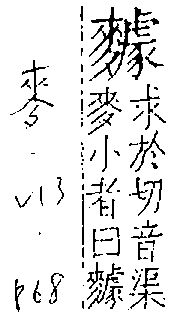 求於切音渠
麥小者曰
麥 . V13 . P68